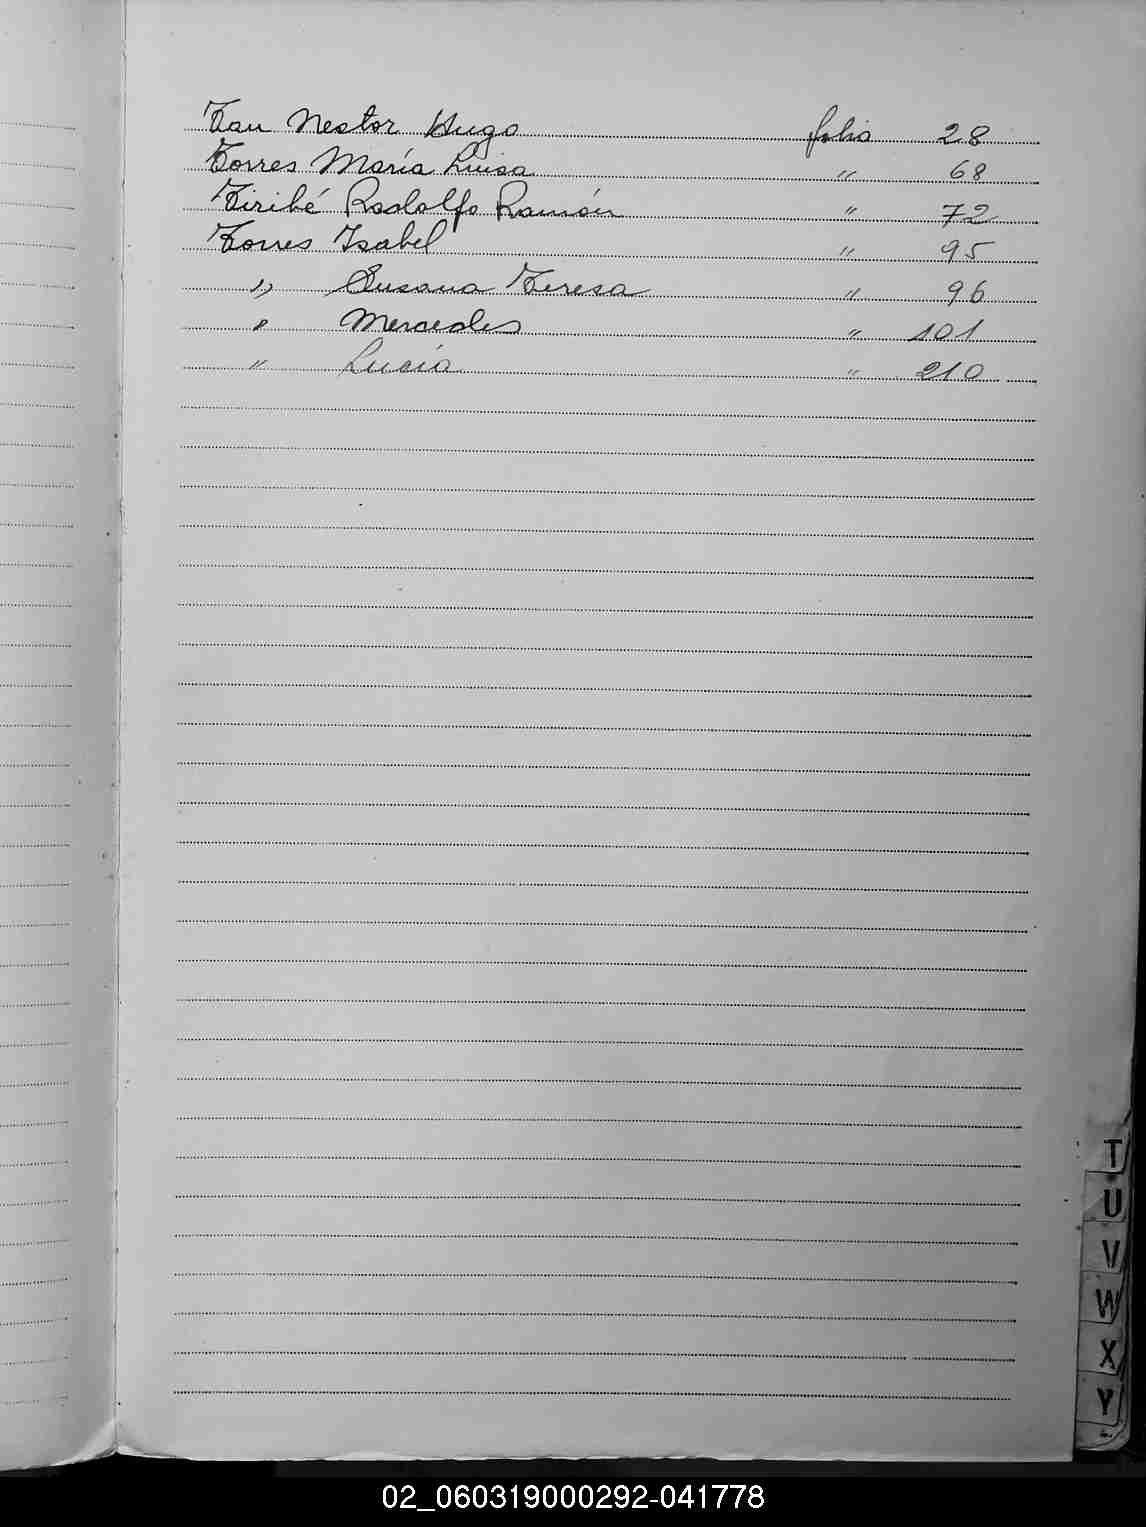 Tau Nestor Hugo folio 28
Torres María Luisa " 68
Tiribé Rodolfo Ramón " 72
Torres Isabel " 95
" Susana Teresa " 96
" Mercedes " 101
" Lucía " 210
T
U
V
W
X
Y
02_060319000292-041778